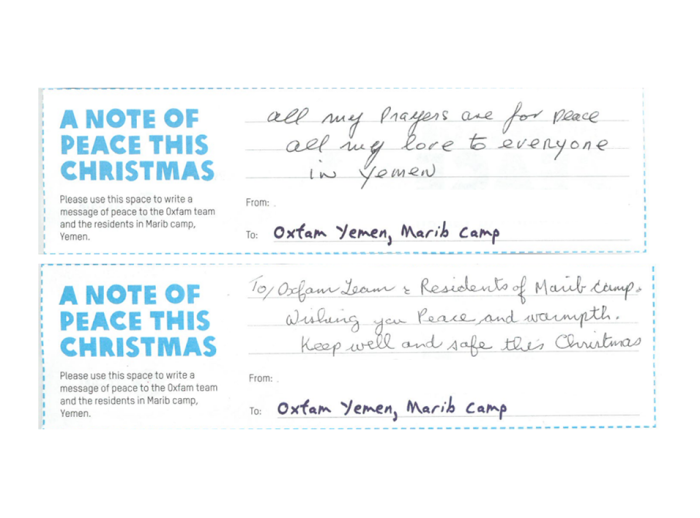 A NOTE OF
PEACE THIS
CHRISTMAS
Please use this space to write a
message of peace to the Oxfam team
and the residents in Marib camp,
Yemen.
all my Prayers are for peace
all my love to everyone
in Yemen
From:
To: Oxfam Yemen, Marib Camp
A NOTE OF
PEACE THIS
CHRISTMAS
Please use this space to write a
message of peace to the Oxfam team
and the residents in Marib camp,
Yemen.
To/ Oxfam Team & Residents of Marib Camp.
Wishing you Peace and warmpth.
Keep well and safe this Christmas
From:
To: Oxfam Yemen, Marib Camp